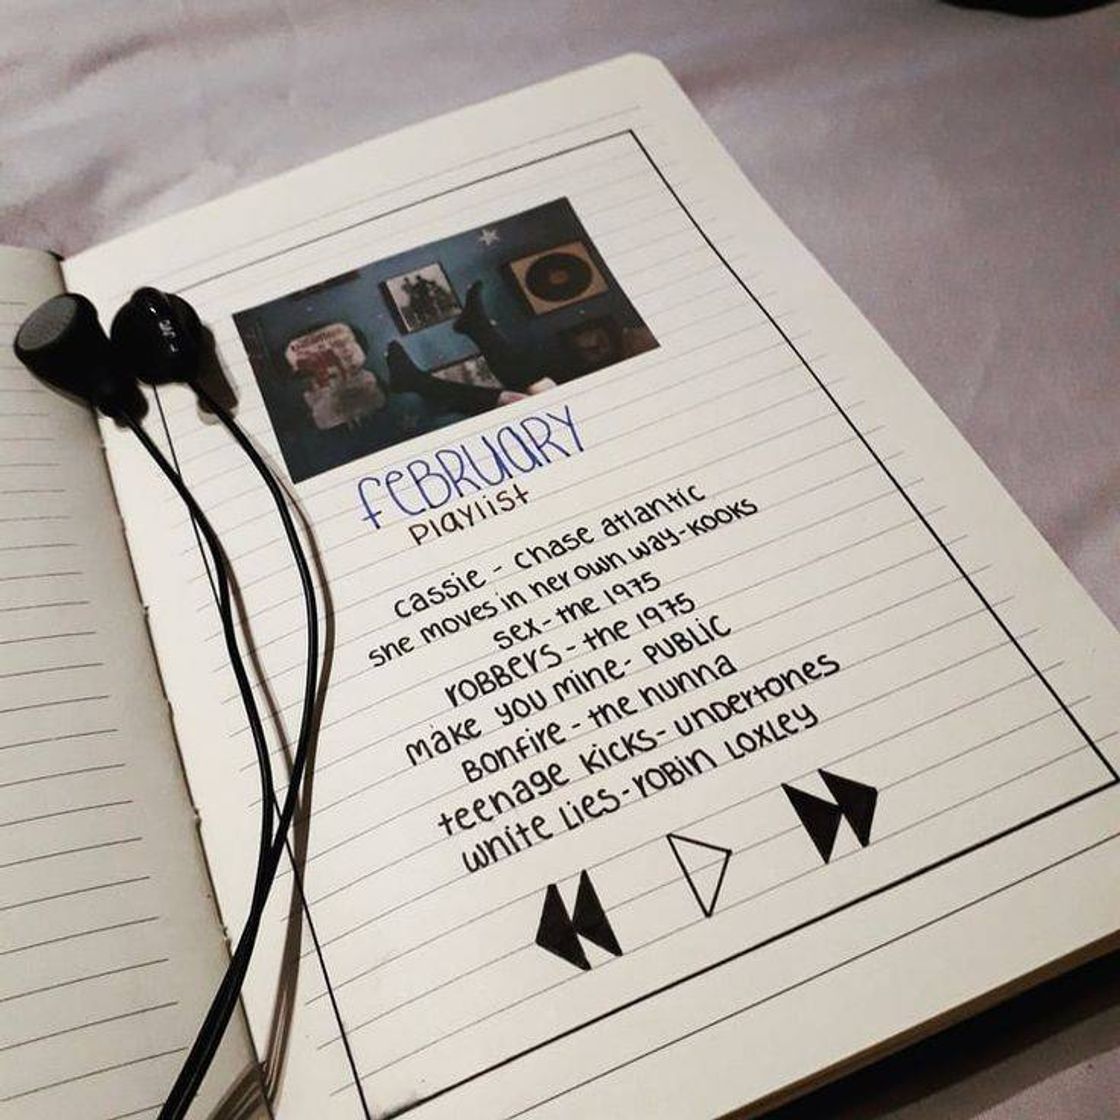 FEBRUARY
Playlist
cassie - chase atlantic
she moves in her own way-kooks
sex-the 1975
robbers - the 1975
make you mine- PUBLIC
Bonfire - the hunna
teenage kicks- undertones
white lies-robin loxley